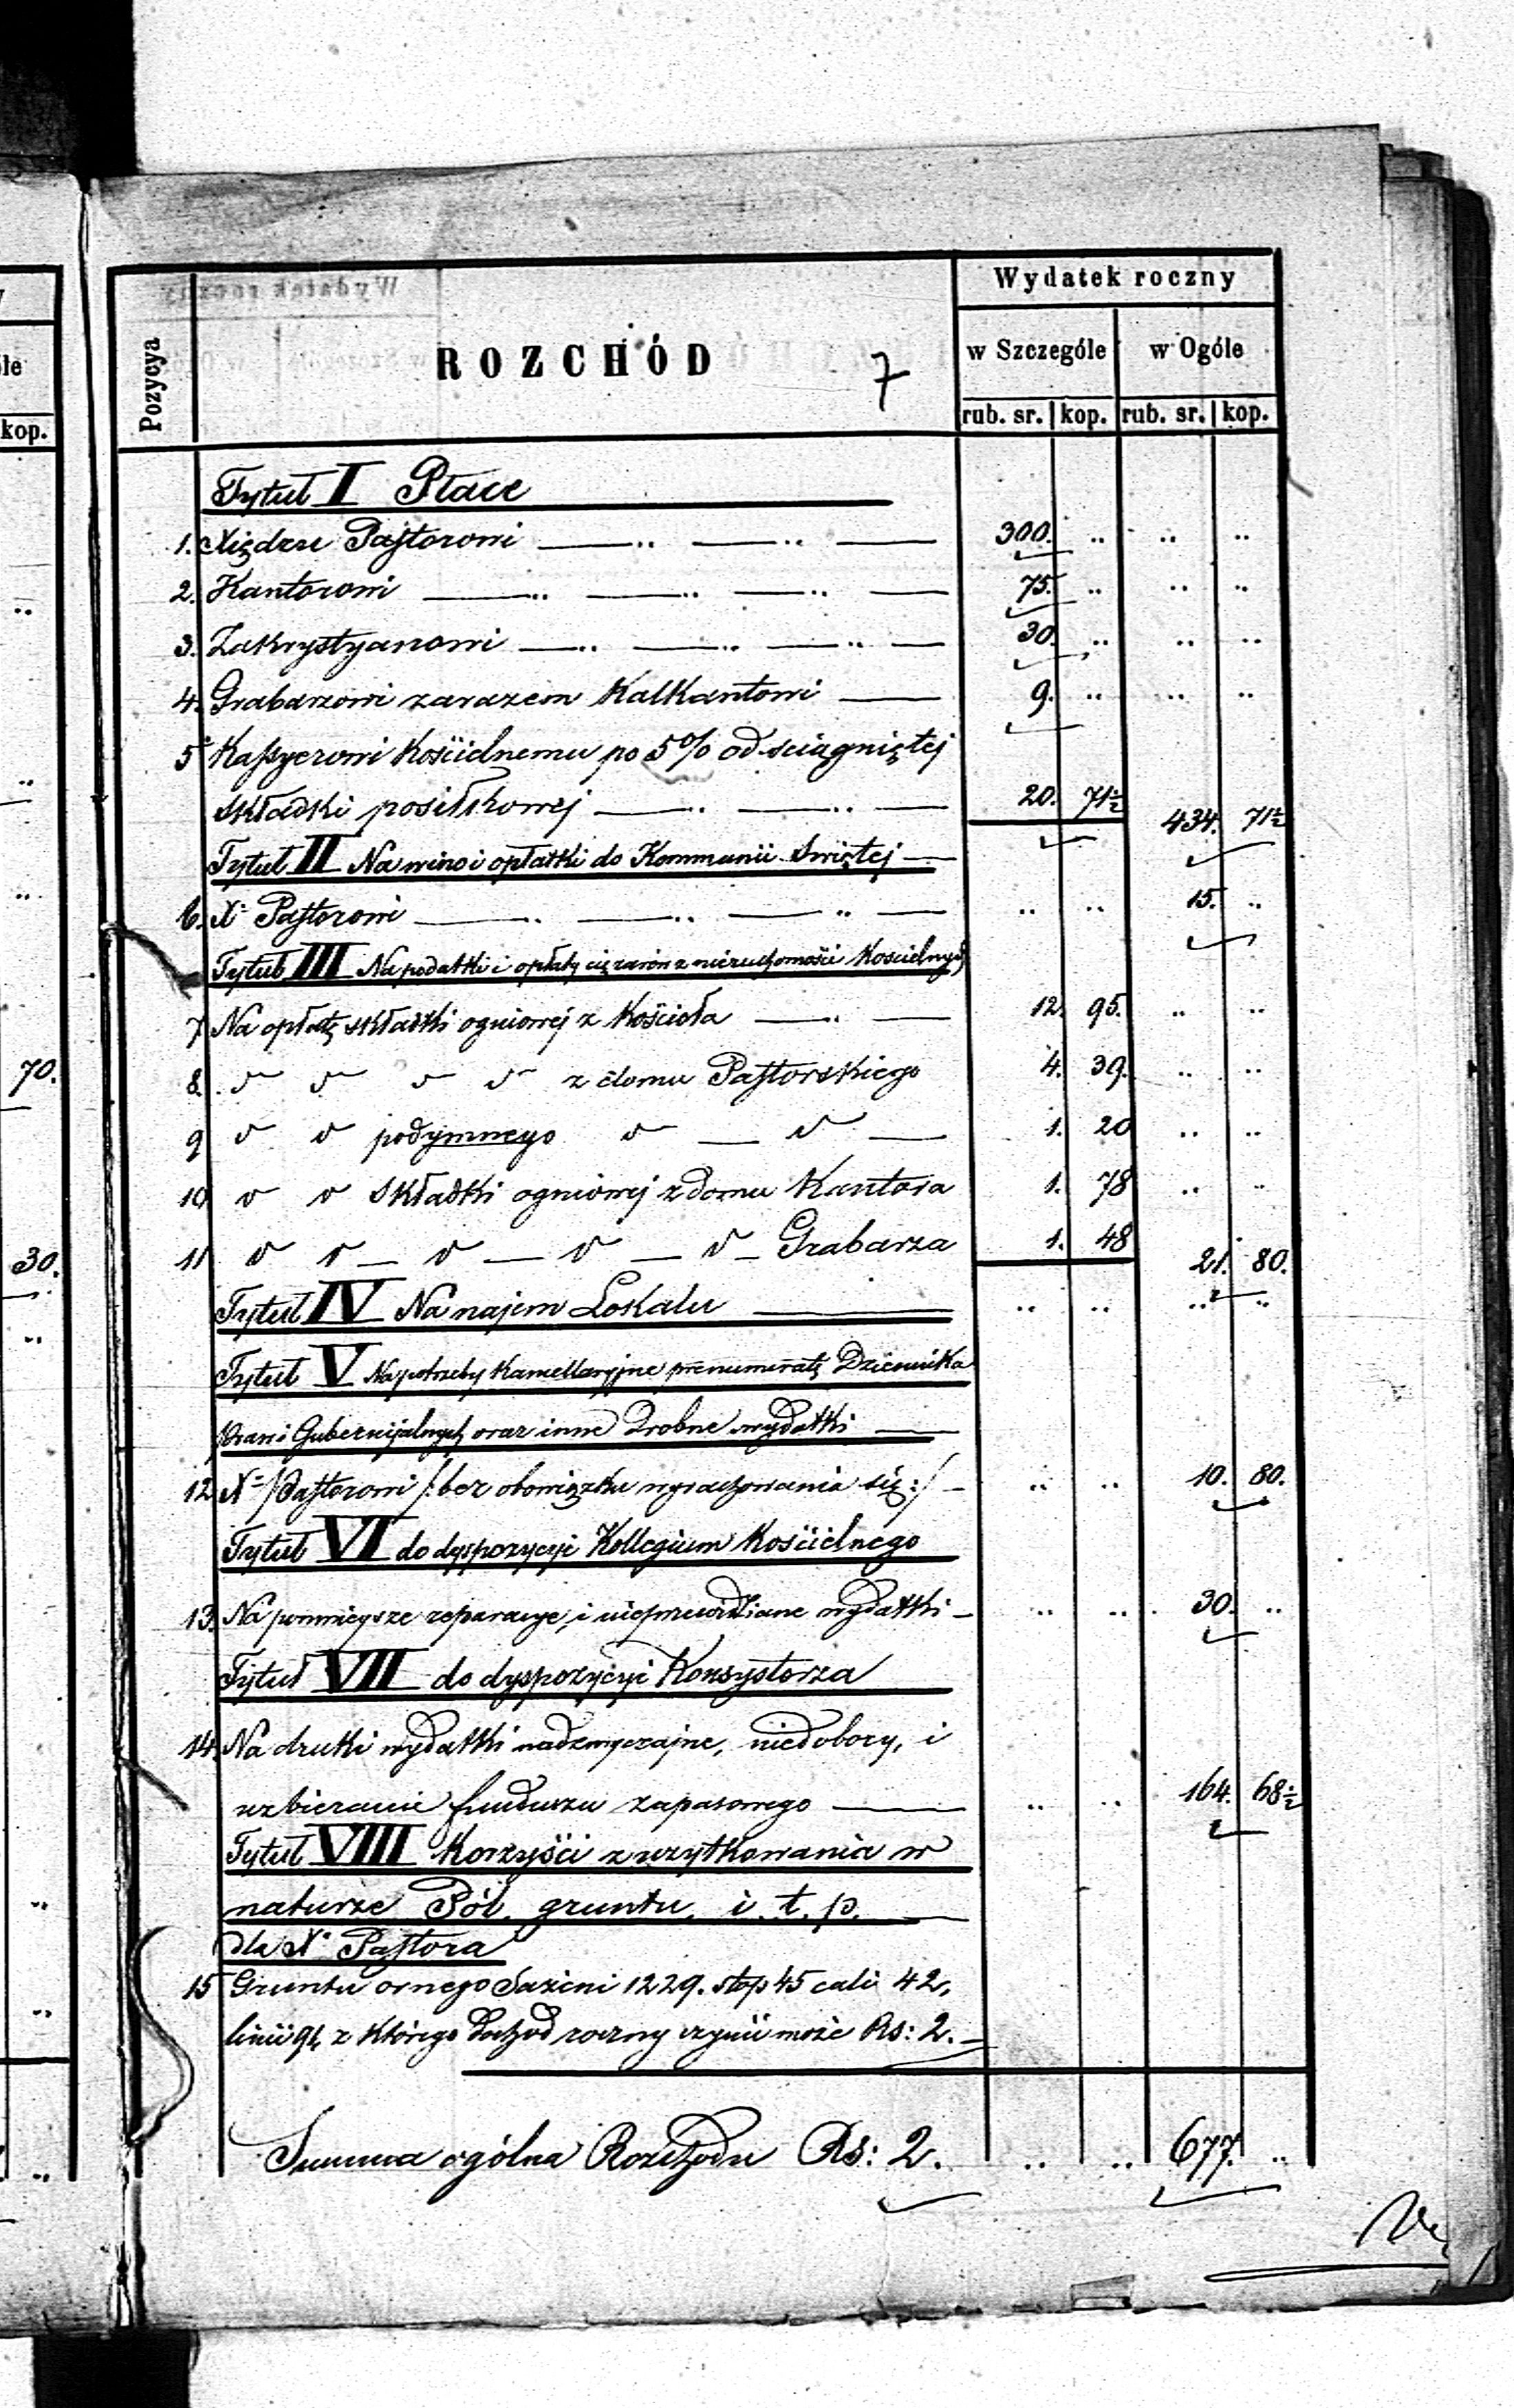 Wydatek roczny
Pozycya
ROZCHÓD
7
w Szczególe
w Ogóle
rub. sr. kop. rub. sr. kop.
kop.
Tytuł I Płace
1. Xiędzu Pastorowi 300. .. .. ..
2. Kantorowi 75. .. .. ..
3. Zakrystyanowi 30. .. .. ..
4. Grabarzowi zarazem Kalkantowi 9. .. .. ..
5 Kassyerowi Kościelnemu po 5% od sciągniętej
składki posiłkowej 20. 71½ 434. 71½
Tytuł II Na wino i opłatki do Kommunii Swiętej
6. X. Pastorowi .. .. 15. ..
Tytuł III Na podatki i opłaty ciężarów z nieruchomości Kościelnych
7 Na opłatę składki ogniowej z Kościoła 12. 95. .. ..
8. " " " " z domu Pastorskiego 4. 39. .. ..
9 " " podymnego " — " — 1. 20 .. ..
10 " " Składki ogniowej z domu Kantora 1. 78 .. ..
11 " " — " — " — " — Grabarza 1. 48 21. 80.
Tytuł IV Na najem Lokalu .. .. .. ..
Tytuł V Na potrzeby Kancellaryjne prenumeratę Dziennika
Praw i Gubernijalnych oraz inne Drobne wydatki
12 X. Pastorowi /: bez obowiązku wyrachowania się :/ .. .. 10. 80.
Tytuł VI do dyspozycyi Kollegium Kościelnego
13. Na pomniejsze reparacye, i nieprzewidziane wydatki .. .. 30. ..
Tytuł VII do dyspozycyi Konsystorza
14. Na druki wydatki nadzwyczajne, niedobory, i
uzbieranie funduszu zapasowego .. .. 164. 68½
Tytuł VIII Korzyści z użytkowania w
naturze Pól, gruntu, i. t. p.
dla X. Pastora
15 Gruntu ornego Sażeni 1229. stop 45 cali 42,
linii 91, z którego dochód roczny czynić może Rs: 2.
Summa ogólna Rozchodu Rs: 2. .. .. 677. ..
70.
30.